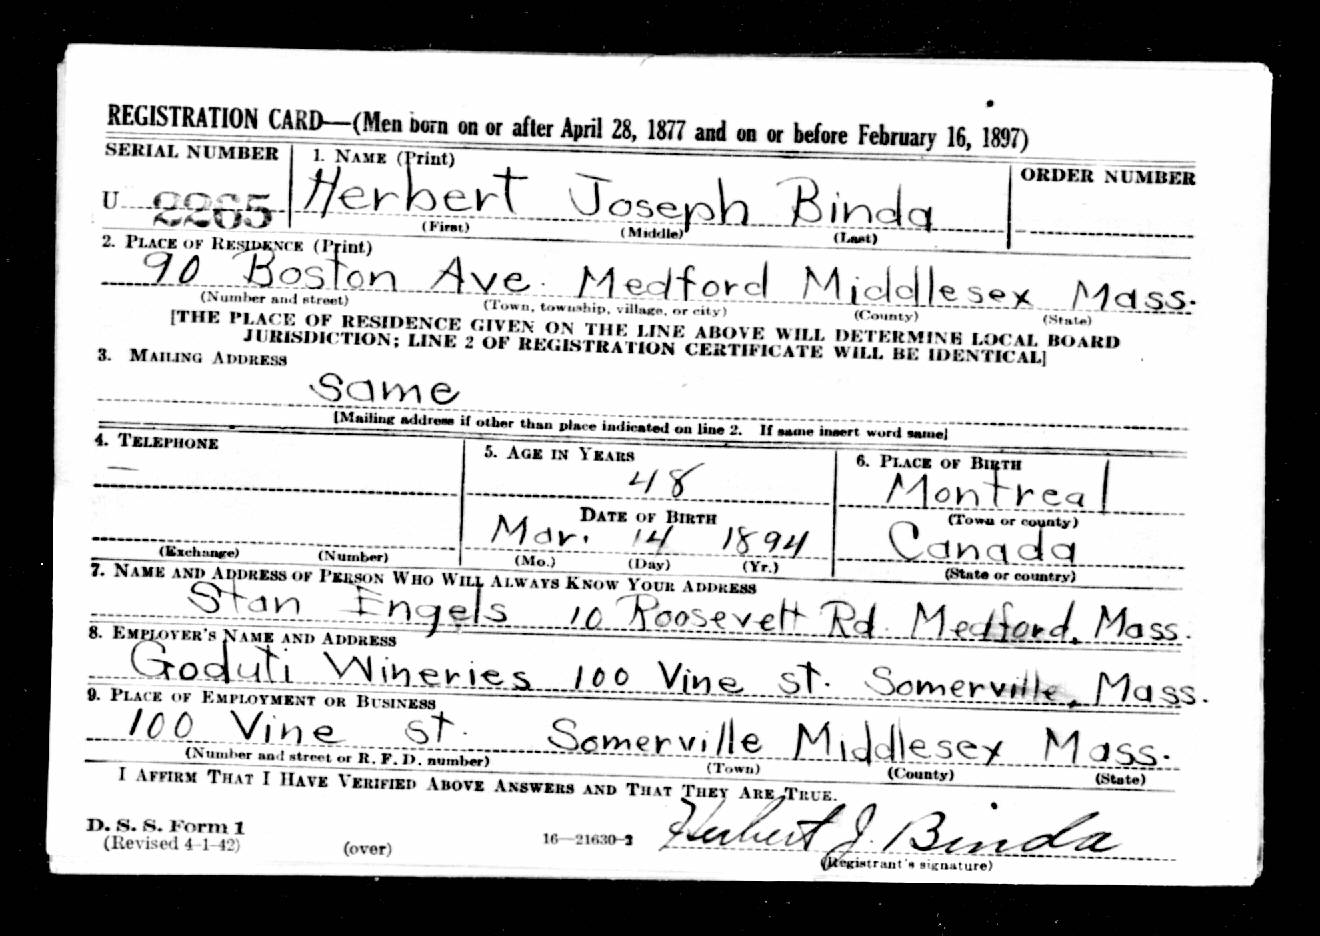 REGISTRATION CARD—(Men born on or after April 28, 1877 and on or before February 16, 1897)
SERIAL NUMBER 1. NAME (Print) ORDER NUMBER
U 2265 Herbert Joseph Binda
(First) (Middle) (Last)
2. PLACE OF RESIDENCE (Print)
90 Boston Ave. Medford Middlesex Mass.
(Number and street) (Town, township, village, or city) (County) (State)
[THE PLACE OF RESIDENCE GIVEN ON THE LINE ABOVE WILL DETERMINE LOCAL BOARD
JURISDICTION; LINE 2 OF REGISTRATION CERTIFICATE WILL BE IDENTICAL]
3. MAILING ADDRESS
Same
[Mailing address if other than place indicated on line 2. If same insert word same]
4. TELEPHONE 5. AGE IN YEARS 6. PLACE OF BIRTH
— 48 Montreal
DATE OF BIRTH (Town or county)
Mar. 14 1894 Canada
(Exchange) (Number) (Mo.) (Day) (Yr.) (State or country)
7. NAME AND ADDRESS OF PERSON WHO WILL ALWAYS KNOW YOUR ADDRESS
Stan Engels 10 Roosevelt Rd. Medford, Mass.
8. EMPLOYER'S NAME AND ADDRESS
Goduti Wineries 100 Vine st. Somerville, Mass.
9. PLACE OF EMPLOYMENT OR BUSINESS
100 Vine st. Somerville Middlesex Mass.
(Number and street or R. F. D. number) (Town) (County) (State)
I AFFIRM THAT I HAVE VERIFIED ABOVE ANSWERS AND THAT THEY ARE TRUE.
D. S. S. Form 1
(Revised 4-1-42) (over) 16—21630-2 Herbert J. Binda
(Registrant's signature)